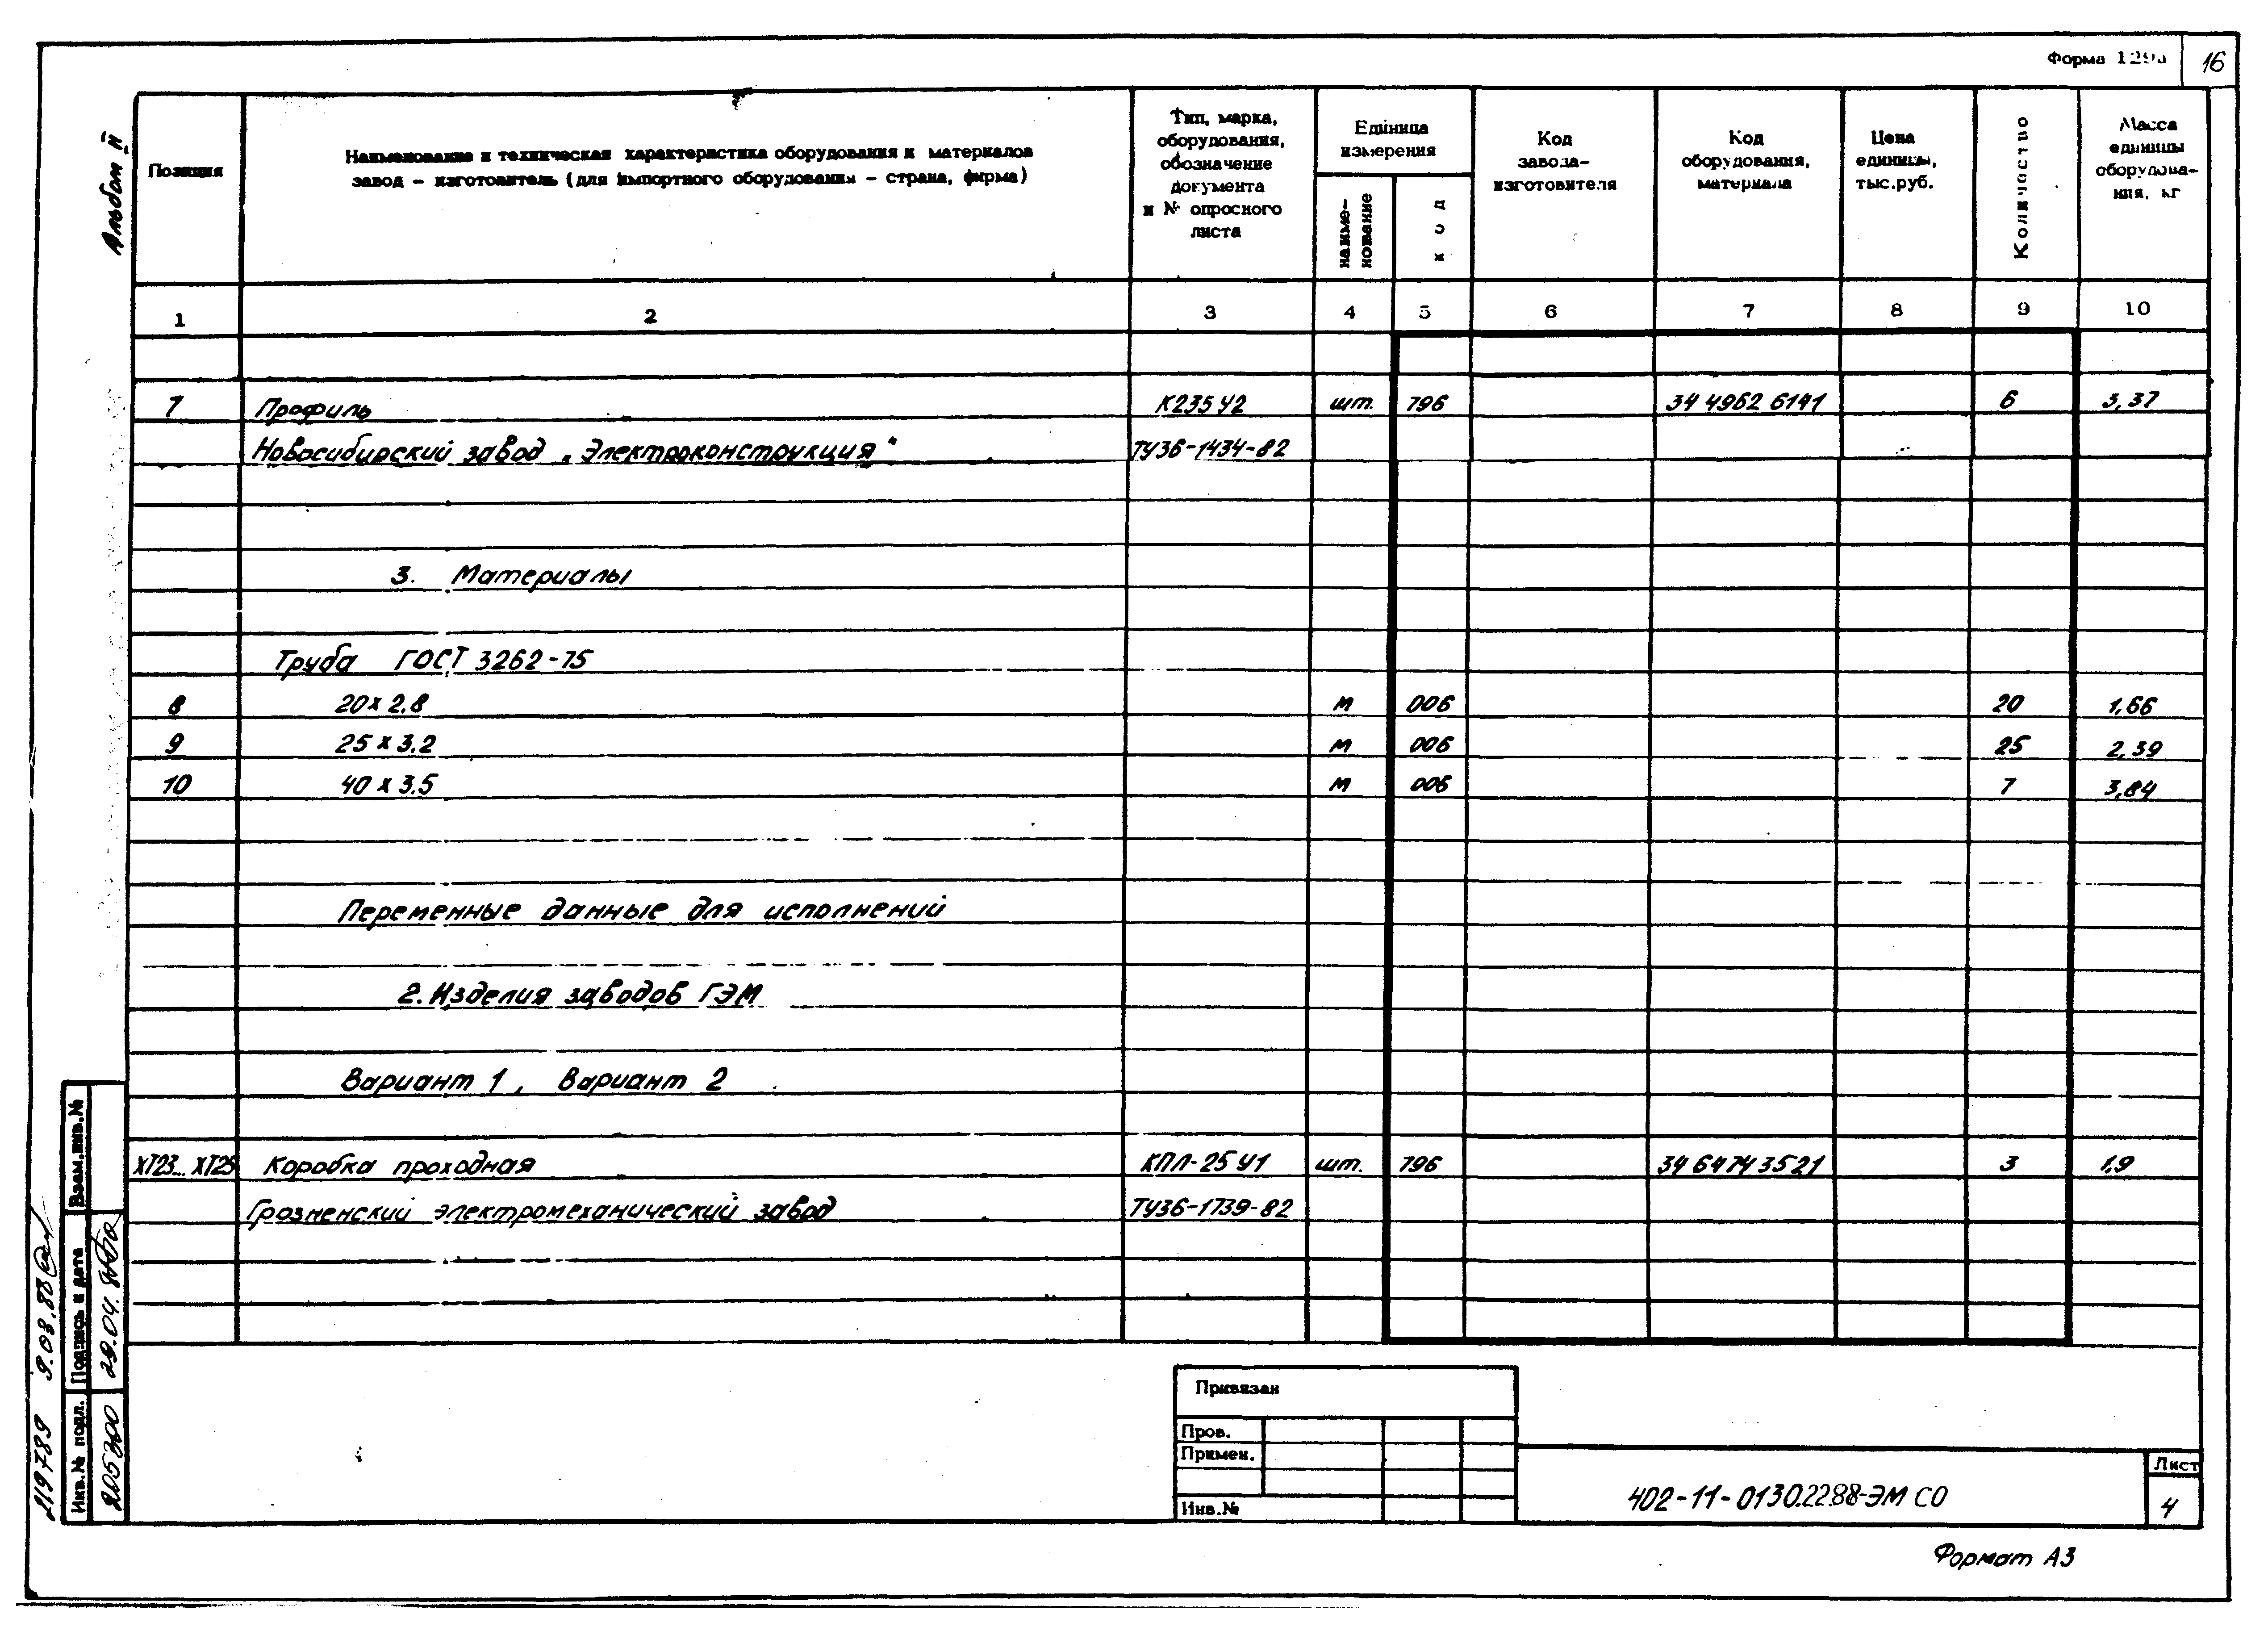 Форма 129а 16
Альбом II
Позиция
Наименование и техническая характеристика оборудования и материалов
завод – изготовитель (для импортного оборудования – страна, фирма)
Тип, марка,
оборудования,
обозначение
документа
и № опросного
листа
Единица
измерения
наиме-
нование
код
Код
завода-
изготовителя
Код
оборудования,
материала
Цена
единицы,
тыс.руб.
Количество
Масса
единицы
оборудова-
ния, кг
1 2 3 4 5 6 7 8 9 10
7 Профиль К235У2 шт. 796 34 4962 6141 6 3,37
Новосибирский завод „Электроконструкция" ТУ36-1434-82
3. Материалы
Труба ГОСТ 3262-75
8 20 x 2.8 м 006 20 1,66
9 25 x 3.2 м 006 25 2,39
10 40 x 3.5 м 006 7 3,84
Переменные данные для исполнений
2. Изделия заводов ГЭМ
Вариант 1, Вариант 2
ХТ23... ХТ25 Коробка проходная КПЛ-25У1 шт. 796 34 6474 3521 3 1,9
Грозненский электромеханический завод ТУ36-1739-82
Взам.инв.№
Подпись и дата
Инв.№ подл.
205300
219789 9.08.88
Привязан
Пров.
Примен.
Инв.№
402-11-0130.22.88-ЭМ СО
Лист
4
Формат А3